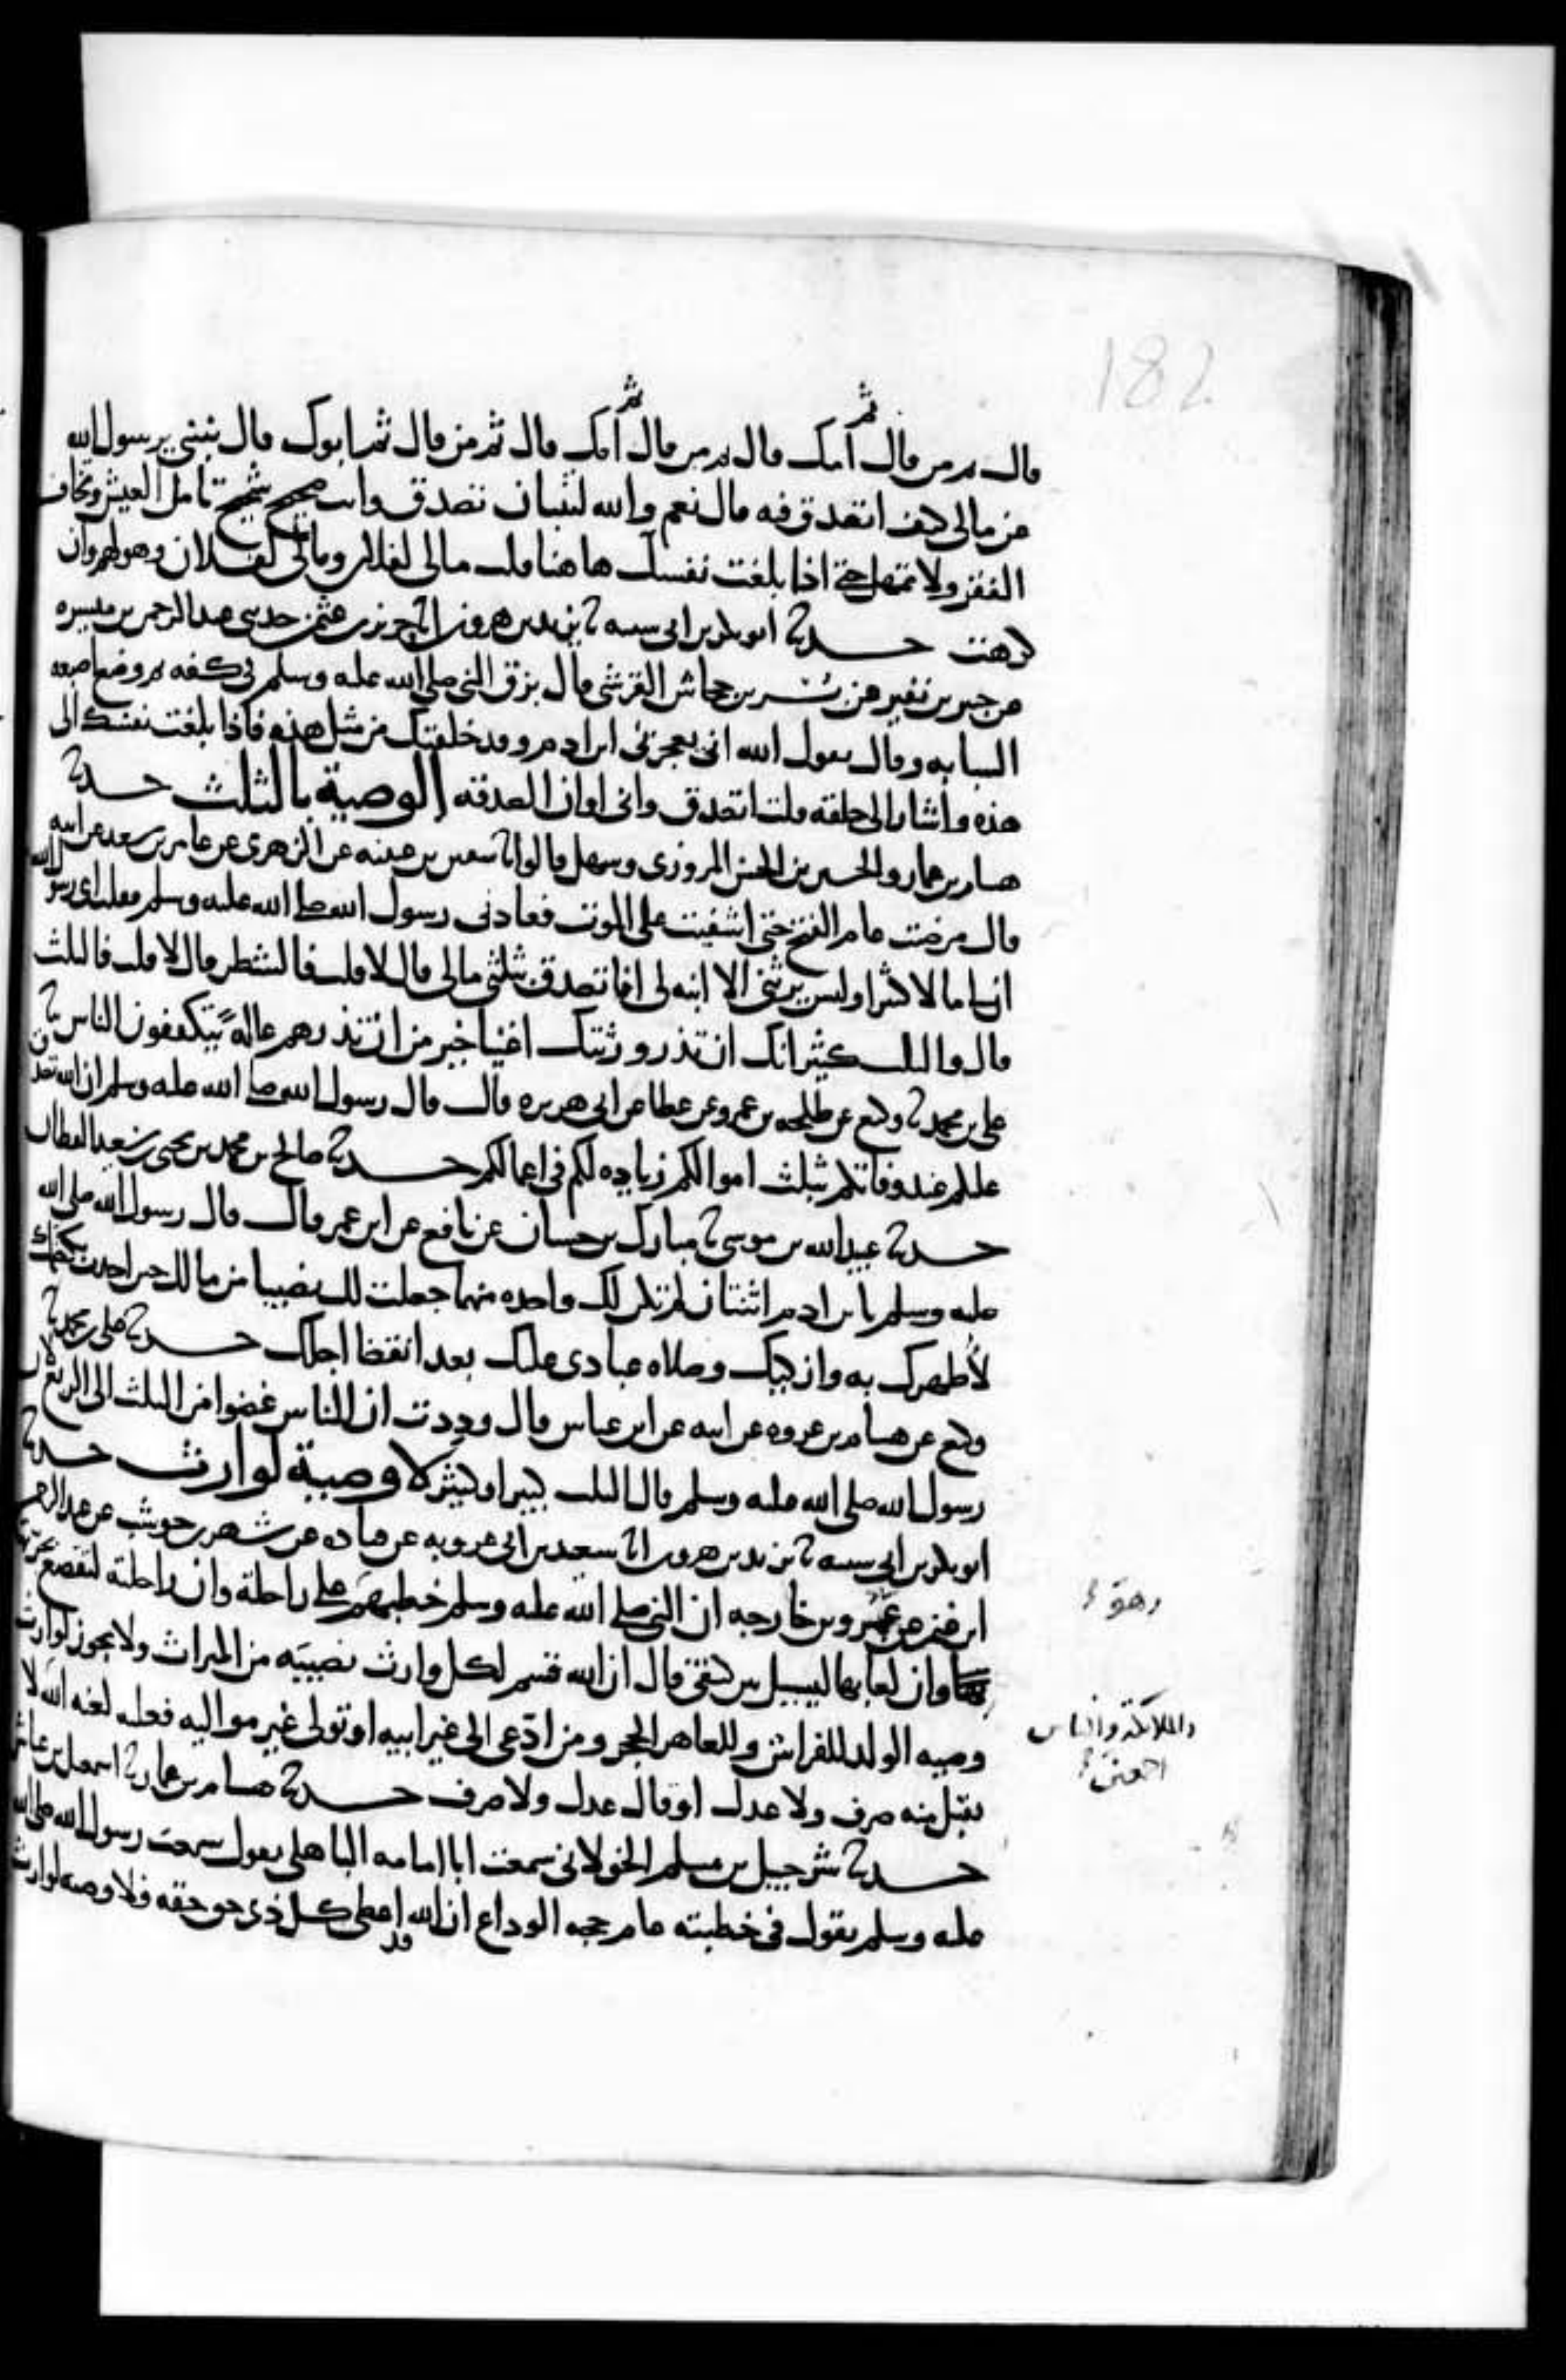 182
قال ثم من قال ثم امك قال ثم من قال ثم امك قال ثم من قال ثم ابوك قال نبئني يرسول الله
عن مالى كيف اتصدق فيه قال نعم والله لتنبان تصدق وانت صحيح شحيح تامل العيش وتخاف
الفقر ولا تمهل حتى اذا بلغت نفسك هاهنا قلت مالى لفلان ومالى لفلان وهو لهم وان
كرهت حدثنا ابو بكر بن ابى شيبه ثنا يزيد بن هرون انا حريز بن عثمن حدثنى عبد الرحمن بن ميسره
عن جبير بن نفير عن بسر بن جحاش القرشى قال بزق النبى صلى الله عليه وسلم فى كفه ثم وضع اصبعه
السبابه وقال يقول الله انى تعجزنى ابن ادم وقد خلقتك من مثل هذه فاذا بلغت نفسك الى
هذه واشار الى حلقه قلت اتصدق وانى اوان الصدقه الوصية بالثلث حدثنا
هشام بن عمار والحسين بن الحسن المروزى وسهل قالوا ثنا سفين بن عيينه عن الزهرى عن عامر بن سعد عن ابيه
قال مرضت عام الفتح حتى اشفيت على الموت فعادنى رسول الله صلى الله عليه وسلم فقلت اى رسول الله
ان لى مالا كثيرا وليس يرثنى الا ابنه لى افاتصدق بثلثى مالى قال لا قلت فالشطر قال لا قلت فالثلث
قال والثلث كثير انك ان تذر ورثتك اغنيا خير من ان تذرهم عالةً يتكففون الناس ثنا
على بن محمد ثنا وكيع عن طلحه بن عمرو عن عطا عن ابى هريره قال قال رسول الله صلى الله عليه وسلم ان الله تصدق
عليكم عند وفاتكم بثلث اموالكم زياده لكم فى اعمالكم حدثنا صالح بن محمد بن يحيى بن سعيد القطان
حدثنا عبيد الله بن موسى ثنا مبارك بن حسان عن نافع عن ابن عمر قال قال رسول الله صلى الله
عليه وسلم يا بن ادم اثنتان لم تكن لك واحده منهما جعلت لك نصيبا من مالك حين اخذت بكظمك
لأطهرك به وازكيك وصلاه عبادى عليك بعد انقضا اجلك حدثنا على بن محمد ثنا
وكيع عن هشام بن عروه عن ابيه عن ابن عباس قال وددت ان الناس غضوا من الثلث الى الربع لان
رسول الله صلى الله عليه وسلم قال الثلث كبير او كثير لا وصية لوارث حدثنا
ابو بكر بن ابى شيبه ثنا يزيد بن هرون انا سعيد بن ابى عروبه عن قتاده عن شهر بن حوشب عن عبد الرحمن
ابن غنم عن عمرو بن خارجه ان النبى صلى الله عليه وسلم خطبهم على راحلة وان راحلته لتقصع بجرتها
وان لعابها ليسيل بين كتفى قال ان الله قسم لكل وارث نصيبَه من الميراث ولا يجوز لوارث
وصيه الولد للفراش وللعاهر الحجر ومن ادّعى الى غير ابيه او تولى غير مواليه فعليه لعنه الله لا
يقبل منه صرف ولا عدل او قال عدل ولا صرف حدثنا هشام بن عمار ثنا اسمعيل بن عياش
حدثنا شرحبيل بن مسلم الخولانى سمعت ابا امامه الباهلى يقول سمعت رسول الله صلى الله
عليه وسلم يقول فى خطبته عام حجه الوداع ان الله قد اعطى كل ذى حق حقه فلا وصيه لوارث
وهو
والملائكة والناس
اجمعين